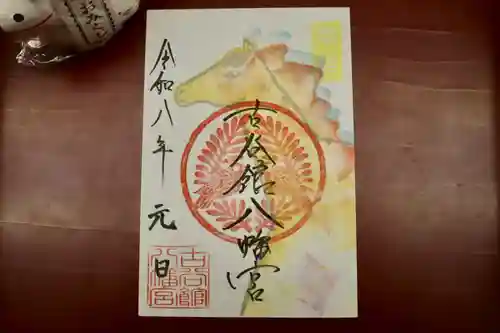 古谷館八幡宮
令和八年 元日
古谷館八幡宮